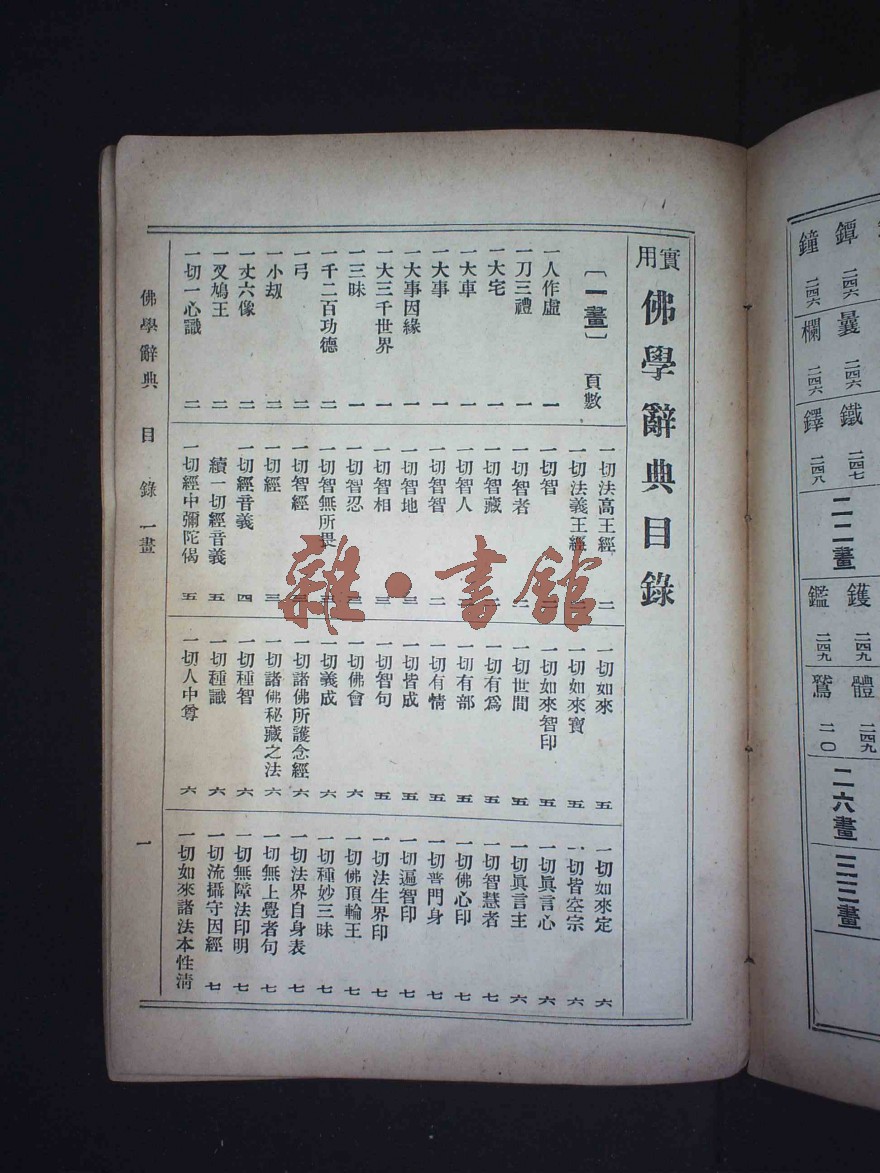 實用佛學辭典目錄
〔一畫〕 頁數
一人作虛 一
一刀三禮 一
一大宅 一
一大車 一
一大事 一
一大事因緣 一
一大三千世界 一
一三昧 一
一千二百功德 二
一弓 二
一小劫 二
一丈六像 二
一叉鳩王 二
一切一心識 二
一切法高王經 二
一切法義王經
一切智
一切智者 二
一切智藏 二
一切智人
一切智智 二
一切智地 三
一切智相 三
一切智忍
一切智無所畏
一切智經
一切經 三
一切經音義 四
續一切經音義 五
一切經中彌陀偈 五
一切如來 五
一切如來寶 五
一切如來智印 五
一切世間 五
一切有為 五
一切有部 五
一切有情 五
一切皆成 五
一切智句 五
一切佛會 六
一切義成 六
一切諸佛所護念經 六
一切諸佛秘藏之法 六
一切種智 六
一切種識 六
一切人中尊 六
一切如來定 六
一切皆空宗 六
一切眞言心 六
一切眞言主 六
一切智慧者 七
一切佛心印 七
一切普門身 七
一切遍智印 七
一切法生界印 七
一切佛頂輪王 七
一切種妙三昧 七
一切法界自身表 七
一切無上覺者句 七
一切無障法印明 七
一切流攝守因經 七
一切如來諸法本性清
佛學辭典 目錄 一畫
一
鐔 二四六
曩 二四六
鐵 二四七
鑊 二四九
體 二四九
鐘 二四六
欄 二四六
鐸 二四八
二二畫
鑑 二四九
鷲 二一〇
二六畫
三三畫
雜·書館